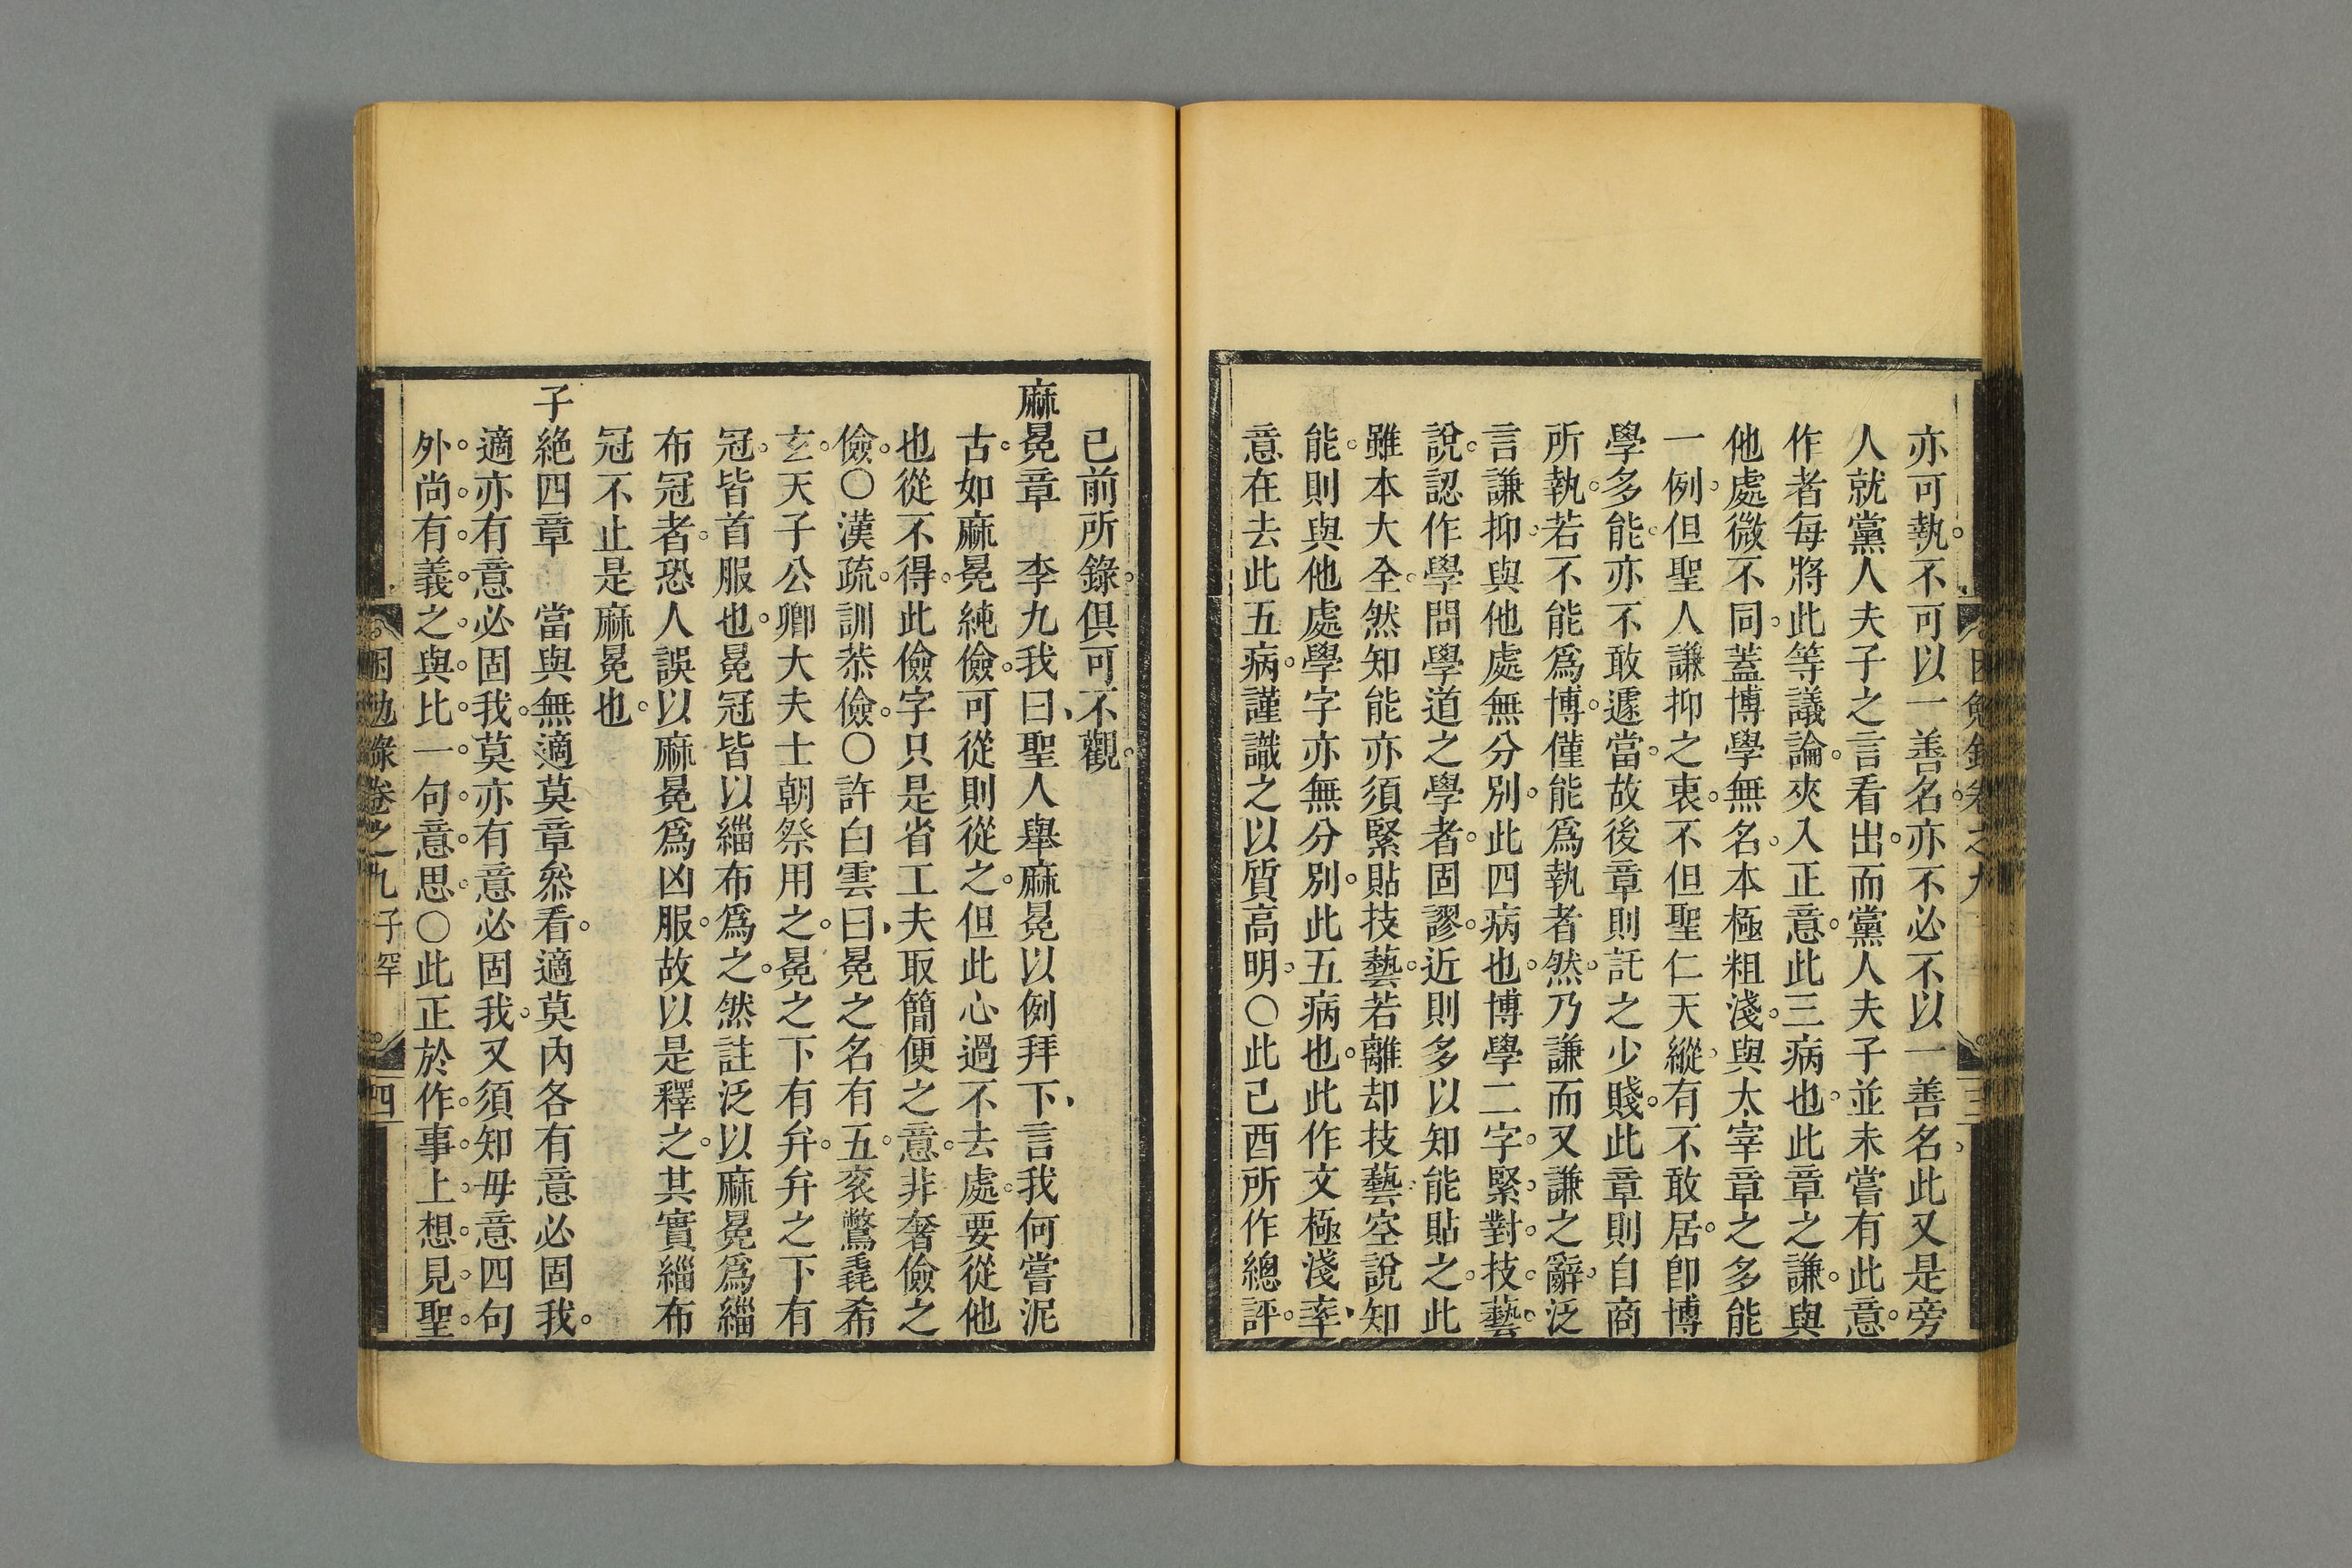 亦可執不可以一善名亦不必不以一善名此又是旁
人就黨人夫子之言看出而黨人夫子並未嘗有此意
作者每將此等議論夾入正意此三病也此章之謙與
他處微不同蓋博學無名本極粗淺與太宰章之多能
一例但聖人謙抑之衷不但聖仁天縱有不敢居卽博
學多能亦不敢遽當故後章則託之少賤此章則自商
所執若不能爲博僅能爲執者然乃謙而又謙之辭泛
言謙抑與他處無分別此四病也博學二字緊對技藝
說認作學問學道之學者固謬近則多以知能貼之此
雖本大全然知能亦須緊貼技藝若離却技藝空說知
能則與他處學字亦無分別此五病也此作文極淺率
意在去此五病謹識之以質高明○此己酉所作總評
已前所錄俱可不觀
麻冕章　李九我曰聖人舉麻冕以例拜下言我何嘗泥
古如麻冕純儉可從則從之但此心過不去處要從他
也從不得此儉字只是省工夫取簡便之意非奢儉之
儉○漢疏訓恭儉○許白雲曰冕之名有五衮鷩毳希
玄天子公卿大夫士朝祭用之冕之下有弁弁之下有
冠皆首服也冕冠皆以緇布爲之然註泛以麻冕爲緇
布冠者恐人誤以麻冕爲凶服故以是釋之其實緇布
冠不止是麻冕也
子絕四章　當與無適莫章叅看適莫內各有意必固我
適亦有意必固我莫亦有意必固我又須知毋意四句
外尚有義之與比一句意思○此正於作事上想見聖
困勉錄卷之九子罕
四